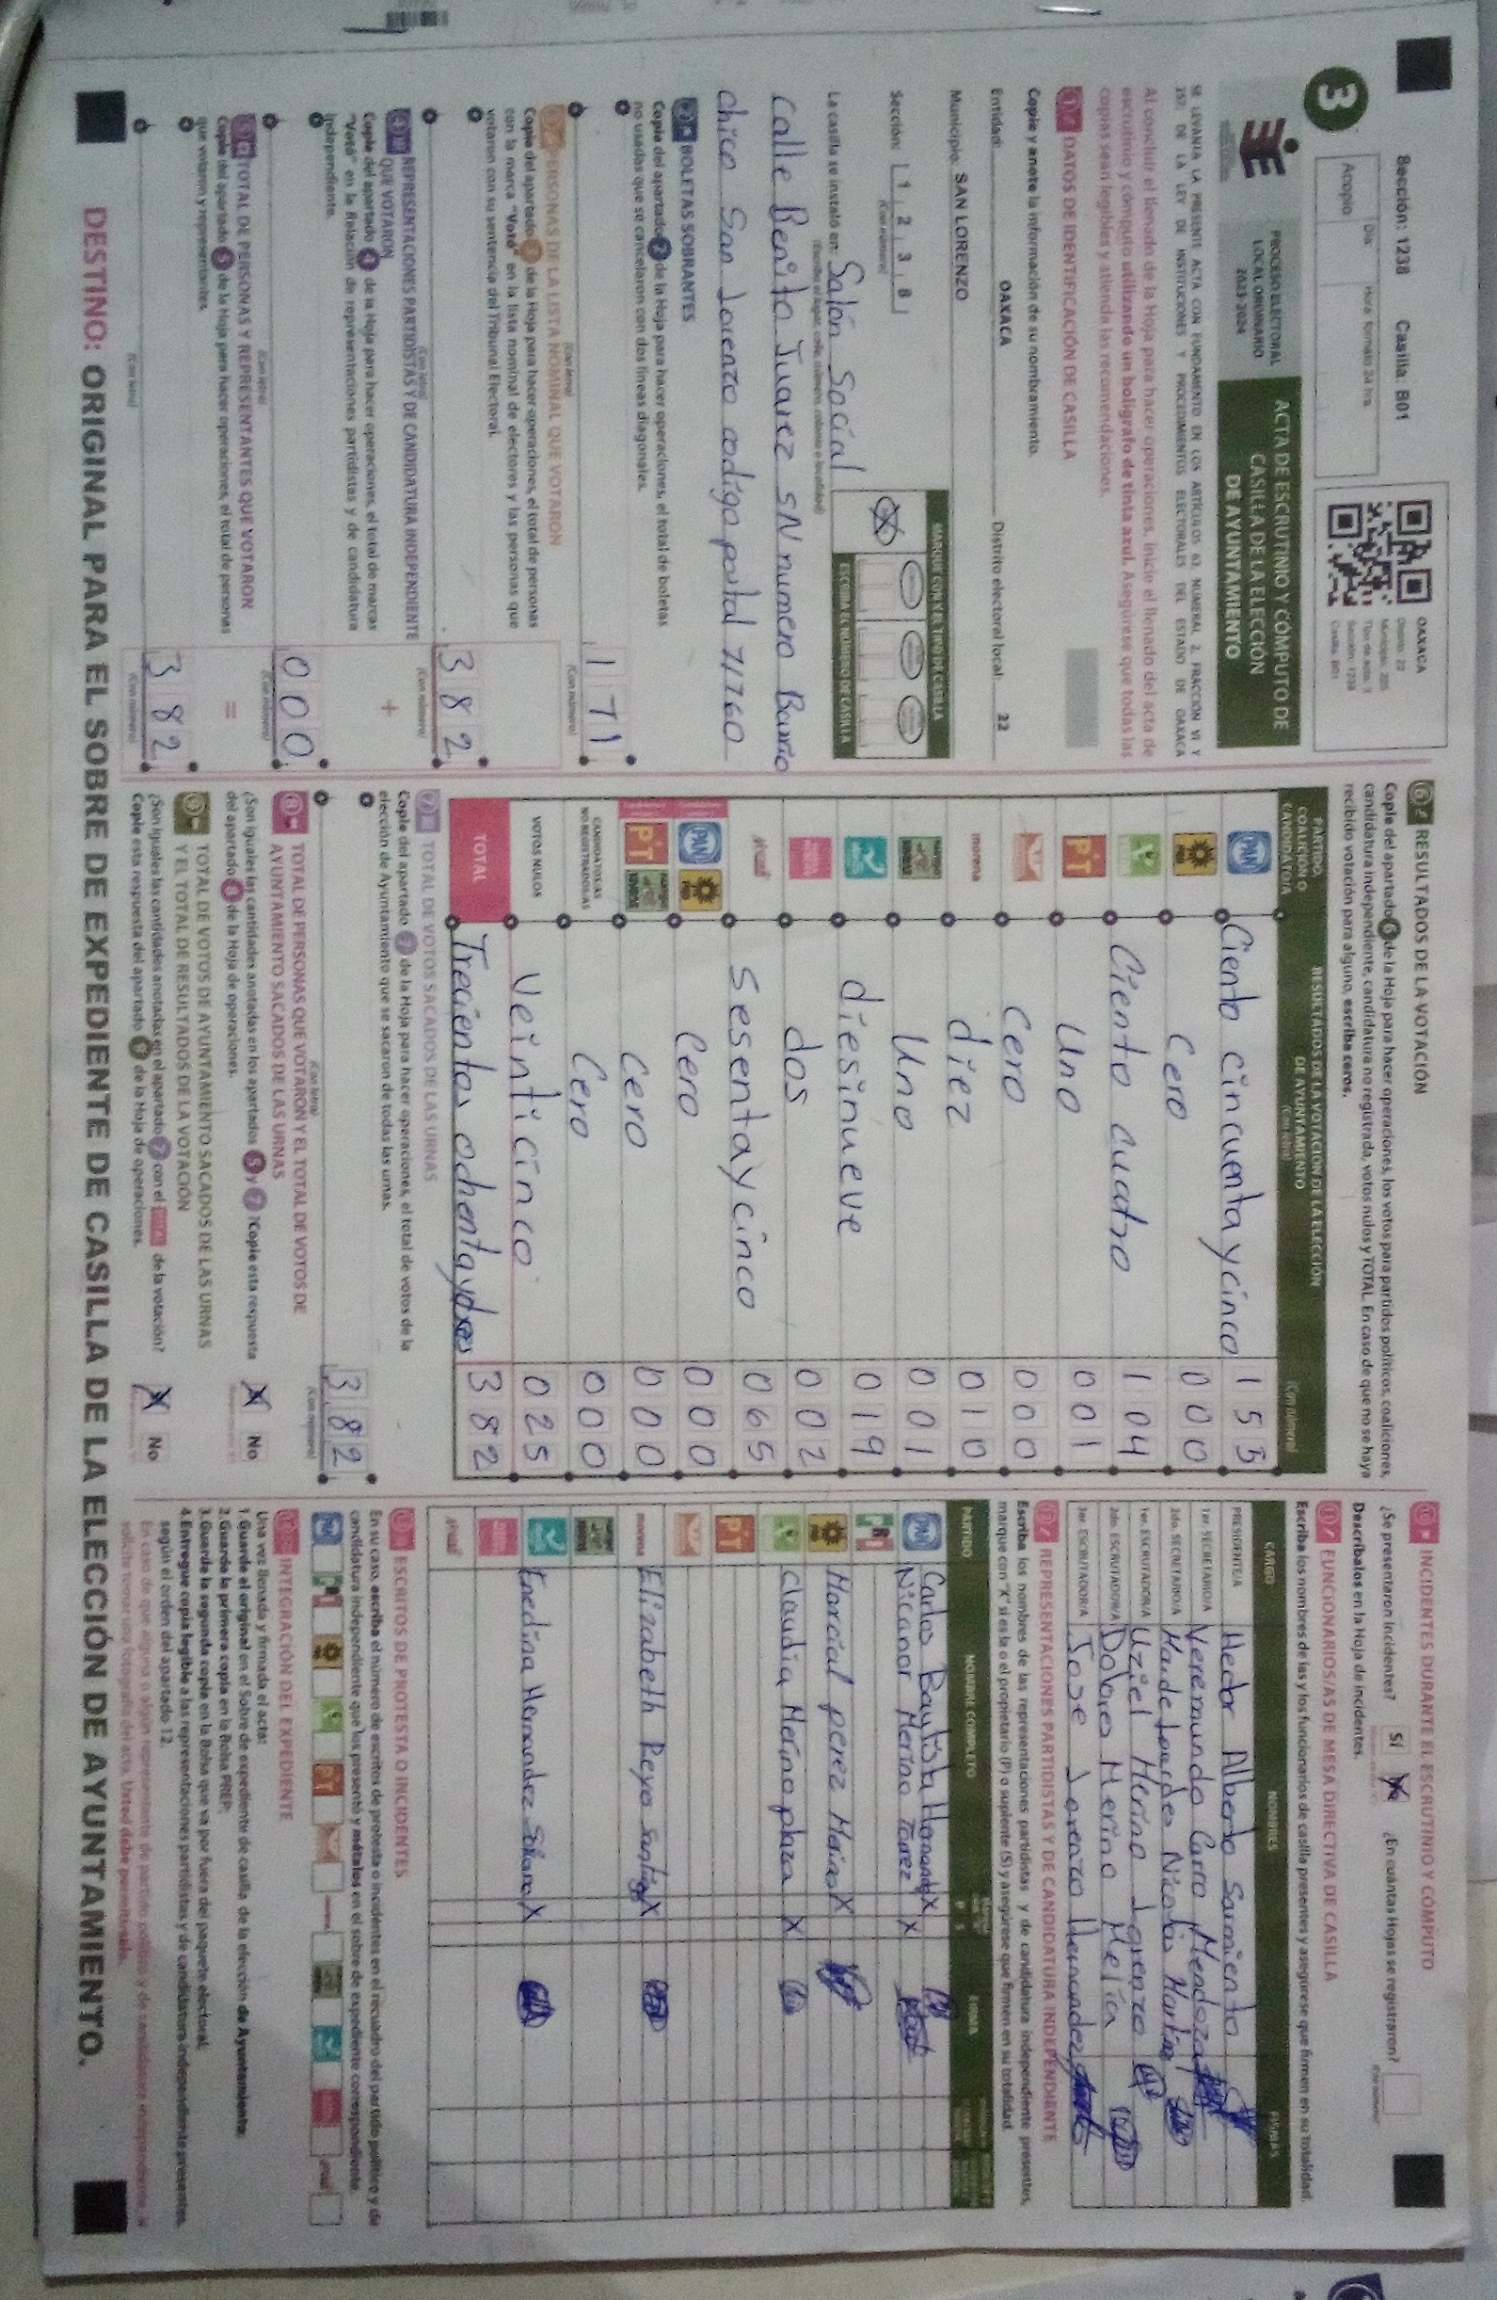 Sección: 1238 Casilla: B01
Día: Hora: formato 24 hrs
Acopio
3
OAXACA
PROCESO ELECTORAL
LOCAL ORDINARIO
2023-2024
ACTA DE ESCRUTINIO Y CÓMPUTO DE
CASILLA DE LA ELECCIÓN
DE AYUNTAMIENTO
SE LEVANTA LA PRESENTE ACTA CON FUNDAMENTO EN LOS ARTÍCULOS 63, NUMERAL 2, FRACCIÓN VI Y
257, DE LA LEY DE INSTITUCIONES Y PROCEDIMIENTOS ELECTORALES DEL ESTADO DE OAXACA
Al concluir el llenado de la Hoja para hacer operaciones, inicie el llenado del acta de
escrutinio y cómputo utilizando un bolígrafo de tinta azul. Asegúrese que todas las
copias sean legibles y atienda las recomendaciones.
DATOS DE IDENTIFICACIÓN DE CASILLA
Copie y anote la información de su nombramiento.
Entidad: OAXACA Distrito electoral local: 22
Municipio: SAN LORENZO
Sección: 1 2 3 8
(Con número)
MARQUE CON X EL TIPO DE CASILLA
ESCRIBA EL NÚMERO DE CASILLA
La casilla se instaló en: Salón Social
(Escriba el lugar, calle, número, colonia o localidad)
Calle Benito Juarez SN numero Barrio
chico San Lorenzo codigo postal 71760
BOLETAS SOBRANTES
Copie del apartado 2 de la Hoja para hacer operaciones, el total de boletas
no usadas que se cancelaron con dos líneas diagonales.
1 7 1
(Con letra) (Con número)
PERSONAS DE LA LISTA NOMINAL QUE VOTARON
Copie del apartado 3 de la Hoja para hacer operaciones, el total de personas
con la marca "Votó" en la lista nominal de electores y las personas que
votaron con su sentencia del Tribunal Electoral.
3 8 2
(Con letra) (Con número)
+
REPRESENTACIONES PARTIDISTAS Y DE CANDIDATURA INDEPENDIENTE
QUE VOTARON
Copie del apartado 4 de la Hoja para hacer operaciones, el total de marcas
"Votó" en la Relación de representaciones partidistas y de candidatura
independiente.
0 0 0
(Con letra) (Con número)
=
TOTAL DE PERSONAS Y REPRESENTANTES QUE VOTARON
Copie del apartado 5 de la Hoja para hacer operaciones, el total de personas
que votaron y representantes.
3 8 2
(Con letra) (Con número)
6 RESULTADOS DE LA VOTACIÓN
Copie del apartado 6 de la Hoja para hacer operaciones, los votos para partidos políticos, coaliciones,
candidatura independiente, candidatura no registrada, votos nulos y TOTAL. En caso de que no se haya
recibido votación para alguno, escriba ceros.
PARTIDO, COALICIÓN O CANDIDATO/A
RESULTADOS DE LA VOTACIÓN DE LA ELECCIÓN
DE AYUNTAMIENTO
(Con letra) (Con número)
PAN Ciento cincuenta y cinco 1 5 5
PRD Cero 0 0 0
Ciento cuatro 1 0 4
PT Uno 0 0 1
Cero 0 0 0
morena diez 0 1 0
Uno 0 0 1
diesinueve 0 1 9
dos 0 0 2
sesenta y cinco 0 6 5
PAN PRD Cero 0 0 0
PT Cero 0 0 0
CANDIDATOS/AS NO REGISTRADOS/AS Cero 0 0 0
VOTOS NULOS Veinticinco 0 2 5
TOTAL Trecientos ochenta y dos 3 8 2
7 TOTAL DE VOTOS SACADOS DE LAS URNAS
Copie del apartado 7 de la Hoja para hacer operaciones, el total de votos de la
elección de Ayuntamiento que se sacaron de todas las urnas.
3 8 2
(Con letra) (Con número)
8 TOTAL DE PERSONAS QUE VOTARON Y EL TOTAL DE VOTOS DE
AYUNTAMIENTO SACADOS DE LAS URNAS
¿Son iguales las cantidades anotadas en los apartados 5 y 7? Copie esta respuesta
del apartado 8 de la Hoja de operaciones.
X No
9 TOTAL DE VOTOS DE AYUNTAMIENTO SACADOS DE LAS URNAS
Y EL TOTAL DE RESULTADOS DE LA VOTACIÓN
¿Son iguales las cantidades anotadas en el apartado 7 con el TOTAL de la votación?
Copie esta respuesta del apartado 9 de la Hoja de operaciones.
X No
INCIDENTES DURANTE EL ESCRUTINIO Y CÓMPUTO
¿Se presentaron incidentes? Sí ¿En cuántas Hojas se registraron?
Descríbalos en la Hoja de incidentes.
FUNCIONARIOS/AS DE MESA DIRECTIVA DE CASILLA
Escriba los nombres de las y los funcionarios de casilla presentes y asegúrese que firmen en su totalidad.
CARGO NOMBRES FIRMAS
PRESIDENTE/A Hector Alberto Sarmiento
1er. SECRETARIO/A Veremundo Carro Mendoza
2do. SECRETARIO/A Haide Lourdes Nicolas Martinez
1er. ESCRUTADOR/A Uziel Merino Lorenzo
2do. ESCRUTADOR/A Dolores Merino Mejía
3er. ESCRUTADOR/A Jose Lorenzo Hernandez
REPRESENTACIONES PARTIDISTAS Y DE CANDIDATURA INDEPENDIENTE
Escriba los nombres de las representaciones partidistas y de candidatura independiente presentes,
marque con "X" si es la o el propietario (P) o suplente (S) y asegúrese que firmen en su totalidad.
PARTIDO NOMBRE COMPLETO FIRMA
PAN Carlos Bautista Hernandez X
Nicanor Merino Torrez X
PRI
PRD Marcial perez Matias X
Claudia Merino plaza X
PT
morena Elizabeth Reyes Santiago X
Enedina Hernandez X
ESCRITOS DE PROTESTA O INCIDENTES
En su caso, escriba el número de escritos de protesta o incidentes en el recuadro del partido político y de
candidatura independiente que los presentó y métalos en el sobre de expediente correspondiente.
INTEGRACIÓN DEL EXPEDIENTE
Una vez llenada y firmada el acta:
1. Guarde el original en el Sobre de expediente de casilla de la elección de Ayuntamiento.
2. Guarde la primera copia en la Bolsa PREP.
3. Guarde la segunda copia en la Bolsa que va por fuera del paquete electoral.
4. Entregue copia legible a las representaciones partidistas y de candidatura independiente presentes,
según el orden del apartado 12.
En caso de que alguna o algún representante de partido político y de candidatura independiente, le
solicite tomar una fotografía del acta, Usted debe permitírselo.
DESTINO: ORIGINAL PARA EL SOBRE DE EXPEDIENTE DE CASILLA DE LA ELECCIÓN DE AYUNTAMIENTO.